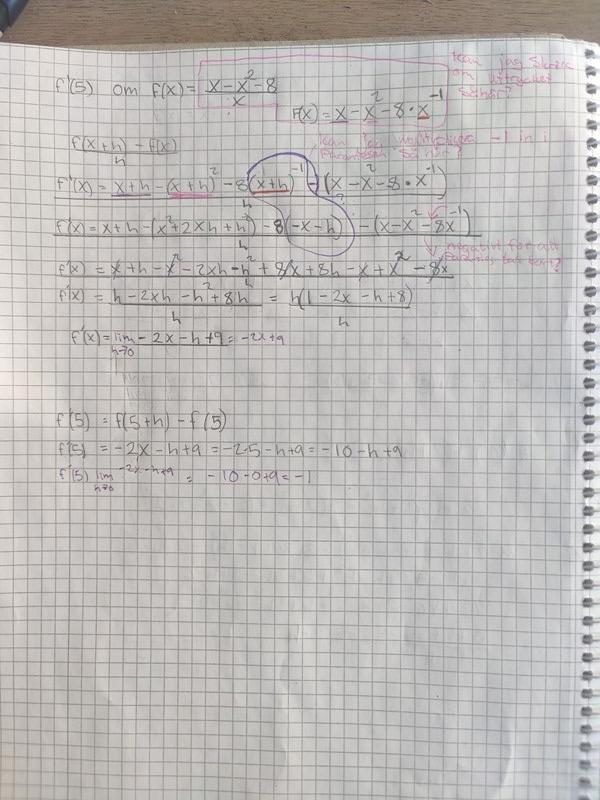 f'(5) om f(x) = x - x² - 8 / x
kan jag skriva
om uttrycket
såhär?
f(x) = x - x² - 8 · x⁻¹
f(x+h) - f(x) / h
kan jag multiplicera -1 in i
Parantesen såhär?
f'(x) = x+h - (x+h)² - 8(x+h)⁻¹ - (x - x² - 8 · x⁻¹) / h
f'(x) = x+h - (x² + 2xh + h²) - 8(-x-h) - (x - x² - 8x⁻¹) / h
negativt för att
f'(x) = x + h - x² - 2xh - h² + 8x + 8h - x + x² - 8x / h
f'(x) = h - 2xh - h² + 8h / h = h(1 - 2x - h + 8) / h
f'(x) = lim h→0 -2x - h + 9 = -2x + 9
f'(5) = f(5+h) - f(5)
f'(5) = -2x - h + 9 = -2·5 - h + 9 = -10 - h + 9
f'(5) lim h→0 -2x - h + 9 = -10 - 0 + 9 = -1